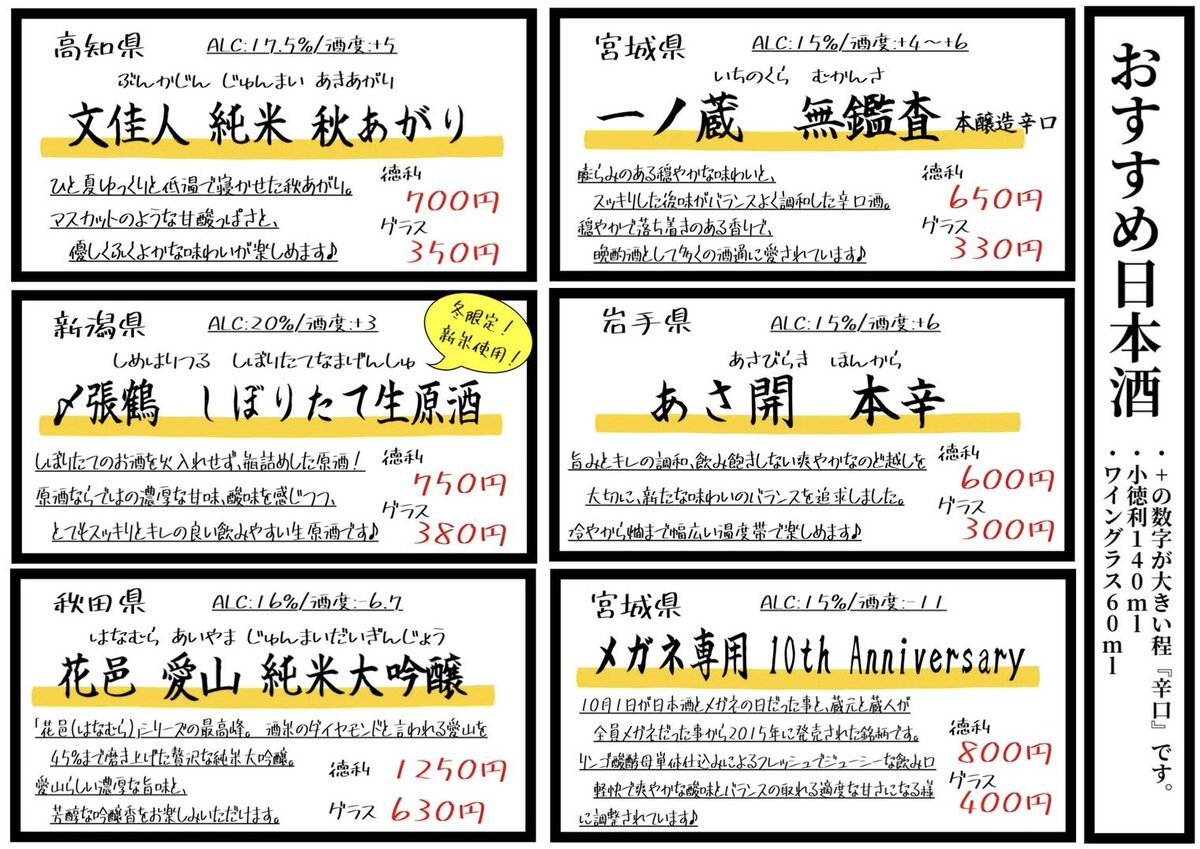 おすすめ日本酒
・+の数字が大きい程『辛口』です。
・小徳利140ml
・ワイングラス60ml
高知県 ALC:17.5%/酒度:+5
ぶんかじん じゅんまい あきあがり
文佳人 純米 秋あがり
ひと夏ゆっくりと低温で寝かせた秋あがり。
マスカットのような甘酸っぱさと、
優しくふくよかな味わいが楽しめます♪
徳利
700円
グラス
350円
宮城県 ALC:15%/酒度:+4〜+6
いちのくら むかんさ
一ノ蔵 無鑑査 本醸造辛口
膨らみのある穏やかな味わいと、
スッキリした後味がバランスよく調和した辛口酒。
穏やかで落ち着きのある香りで、
晩酌酒として多くの酒通に愛されています♪
徳利
650円
グラス
330円
新潟県 ALC:20%/酒度:+3
冬限定!
新米使用!
しめはりつる しぼりたてなまげんしゅ
〆張鶴 しぼりたて生原酒
しぼりたてのお酒を火入れせず、瓶詰めした原酒!
原酒ならではの濃厚な甘味、酸味を感じつつ、
とてもスッキリとキレの良い飲みやすい生原酒です♪
徳利
750円
グラス
380円
岩手県 ALC:15%/酒度:+6
あさびらき ほんから
あさ開 本辛
旨みとキレの調和、飲み飽きしない爽やかなのど越しを
大切に、新たな味わいのバランスを追求しました。
冷やから燗まで幅広い温度帯で楽しめます♪
徳利
600円
グラス
300円
秋田県 ALC:16%/酒度:-6.7
はなむら あいやま じゅんまいだいぎんじょう
花邑 愛山 純米大吟醸
「花邑(はなむら)」シリーズの最高峰。 酒米のダイヤモンドと言われる愛山を
45%まで磨き上げた贅沢な純米大吟醸。
愛山らしい濃厚な旨味と、
芳醇な吟醸香をお楽しみいただけます。
徳利 1250円
グラス 630円
宮城県 ALC:15%/酒度:-11
メガネ専用 10th Anniversary
10月1日が日本酒とメガネの日だった事と、蔵元と蔵人が
全員メガネだった事から2015年に発売された銘柄です。
リンゴ酸酵母単体仕込みによるフレッシュでジューシーな飲み口
軽快で爽やかな酸味とバランスの取れる適度な甘さになる様
に調整されています♪
徳利
800円
グラス
400円